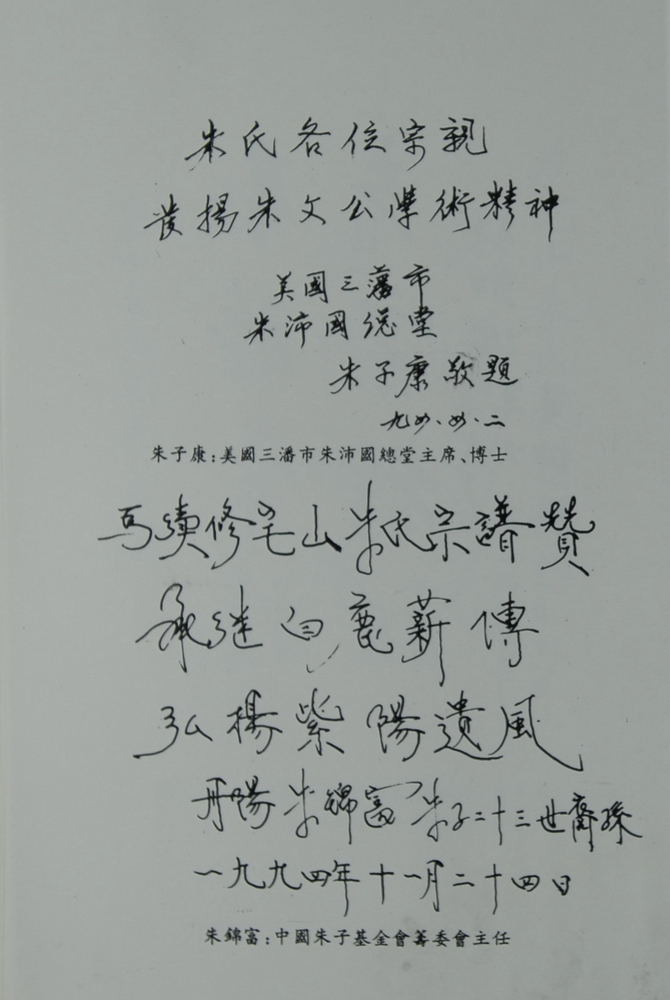 朱氏各位宗親
發揚朱文公學術精神
美國三藩市
朱沛國總堂
朱子康敬題
九四·四·二
朱子康：美國三潘市朱沛國總堂主席、博士
為續修宅山朱氏宗譜贊
承继白鹿薪傳
弘楊紫陽遺風
丹陽朱錦富朱子二十三世裔孫
一九九四年十一月二十四日
朱錦富：中國朱子基金會籌委會主任